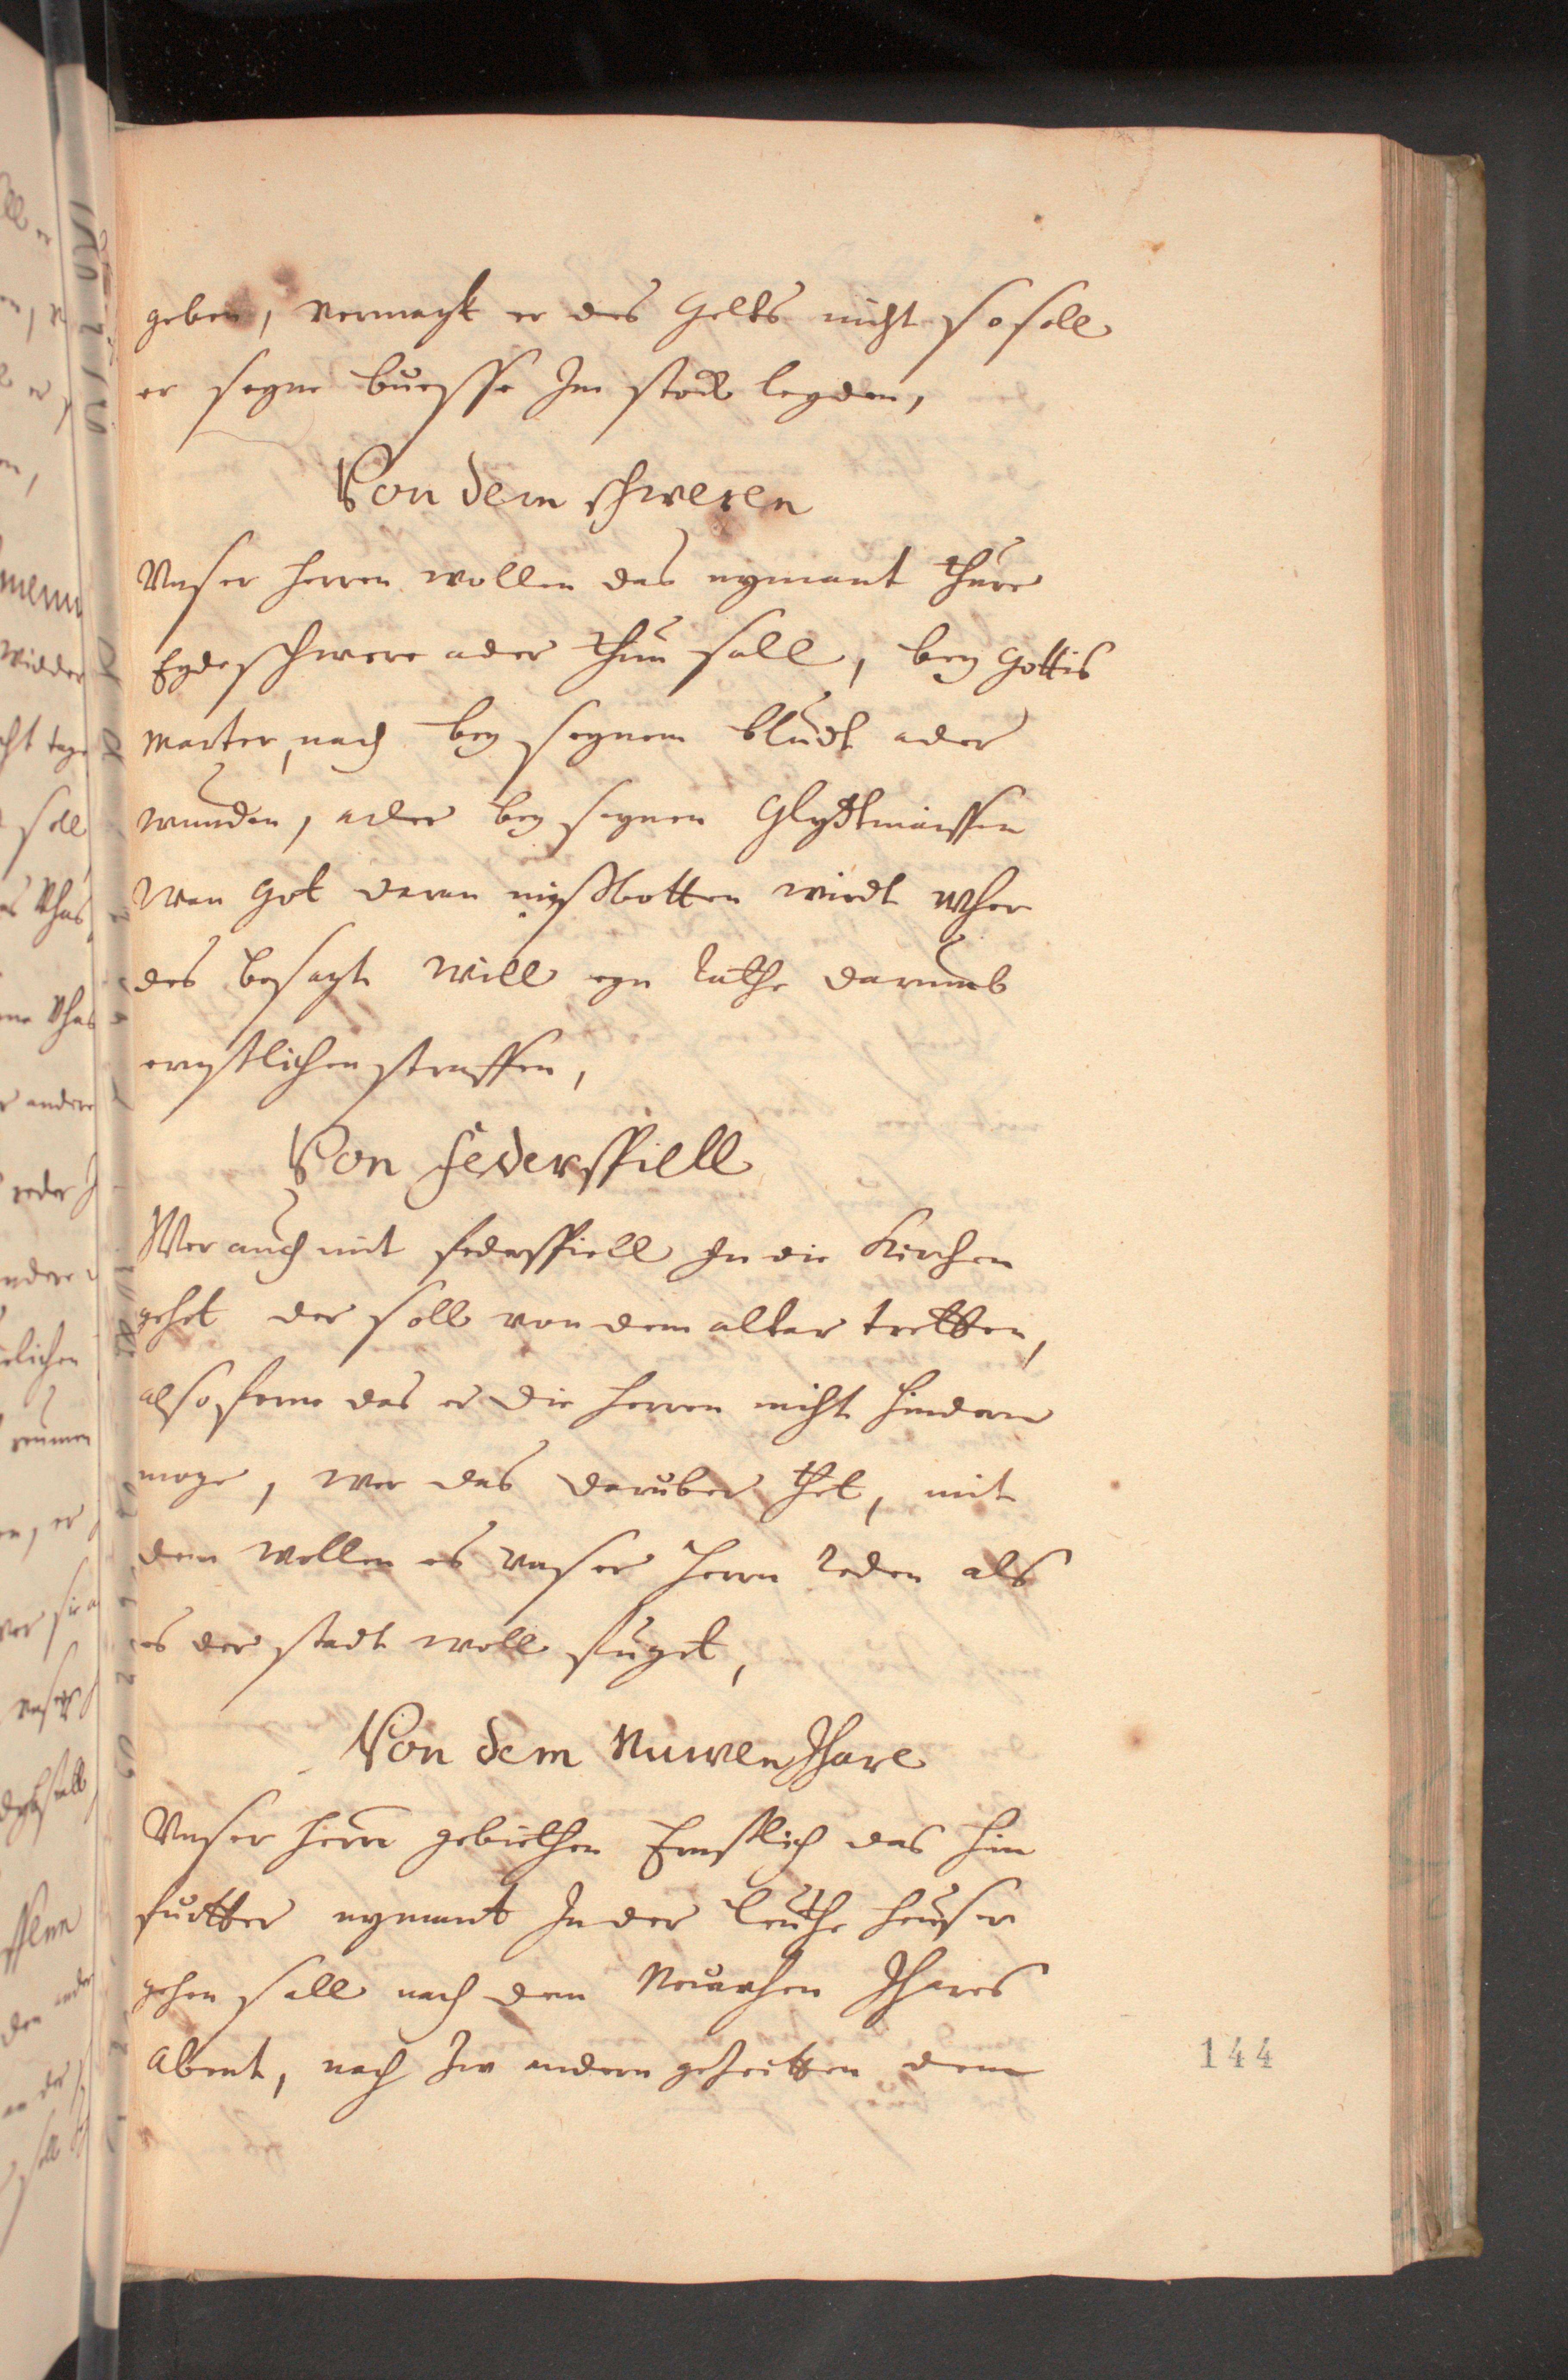 geben, vermachk er des gelts nicht so soll
er seyne buesse Im stock leyden,
Von dem schweren
Unser herren wollen das nymant thure
Eyde schwere ader thun soll, bey gottis
marter, nach bey seynem bludt ader
wunden, ader bey seynen Glydtmaissen
Wan got daran missbotten wirdt wher
des besagt will eyn Rathe darumb
ernstlichen straffen,
Von federspiell
Wer auch mit federspiell In die Kirchen
gehet der soll von dem altar tretten,
also ferne das er die herren nicht hindern
moge, wer das daruber thet, mit
dem wollen es unser herrn Reden als
es der stadt woll fuget,
Von dem Nuwen Jhare
Unser herrn gebiethen Ernstlich das hin
furtter nymant In der leuthe heuser
gehen sall nach dem Neuwhen Jhares
Abent, nach Zw andern geheitten dem
144